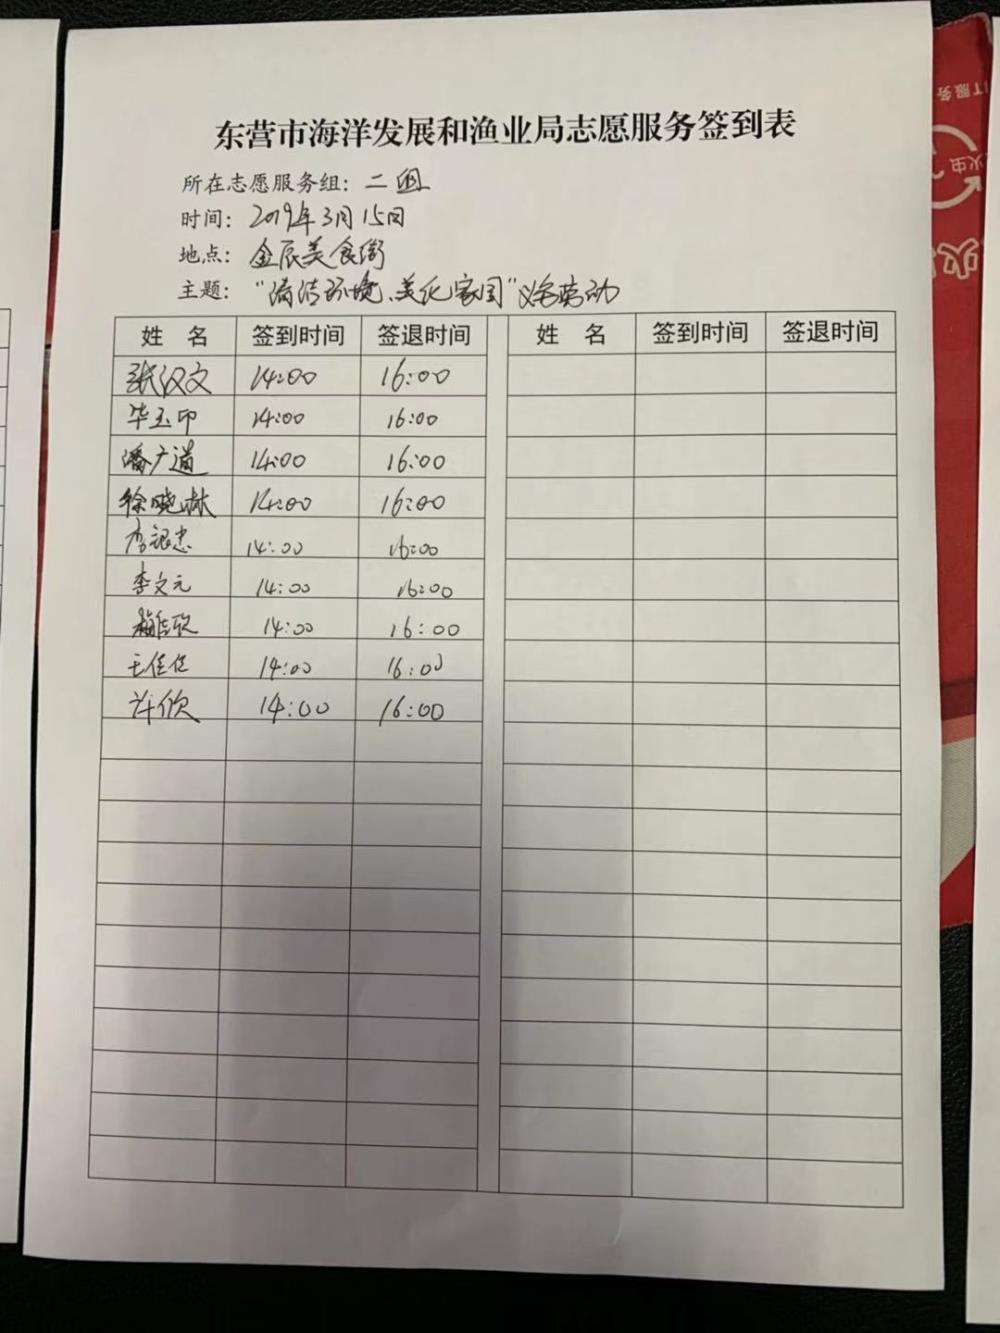 东营市海洋发展和渔业局志愿服务签到表
所在志愿服务组：二组
时间：2019年3月15日
地点：金辰美食街
主题："清洁环境、美化家园"义务劳动
姓 名 签到时间 签退时间 姓 名 签到时间 签退时间
张汉文 14:00 16:00
毕玉印 14:00 16:00
潘广道 14:00 16:00
徐晓林 14:00 16:00
李银忠 14:00 16:00
李文元 14:00 16:00
14:00 16:00
王佳佳 14:00 16:00
许欣 14:00 16:00
IT服务
火虫